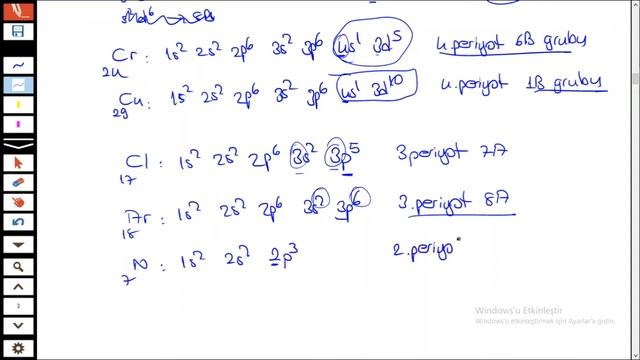 Cr : 1s² 2s² 2p⁶ 3s² 3p⁶ 4s¹ 3d⁵ 4.periyot 6B grubu
24
Cu : 1s² 2s² 2p⁶ 3s² 3p⁶ 4s¹ 3d¹⁰ 4.periyot 1B grubu
29
Cl : 1s² 2s² 2p⁶ 3s² 3p⁵ 3periyot 7A
17
Ar : 1s² 2s² 2p⁶ 3s² 3p⁶ 3.periyot 8A
18
N : 1s² 2s² 2p³ 2.periyo
7
Windows'u Etkinleştir
Windows'u etkinleştirmek için Ayarlar'a gidin.